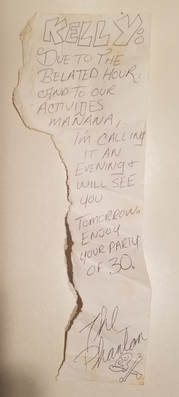 KELLY:
DUE TO THE
BELATED HOUR,
AND TO OUR
ACTIVITIES
MAÑANA,
I'M CALLING
IT AN
EVENING &
WILL SEE
YOU
TOMORROW.
ENJOY
YOUR PARTY
OF 30.
The
Phantom